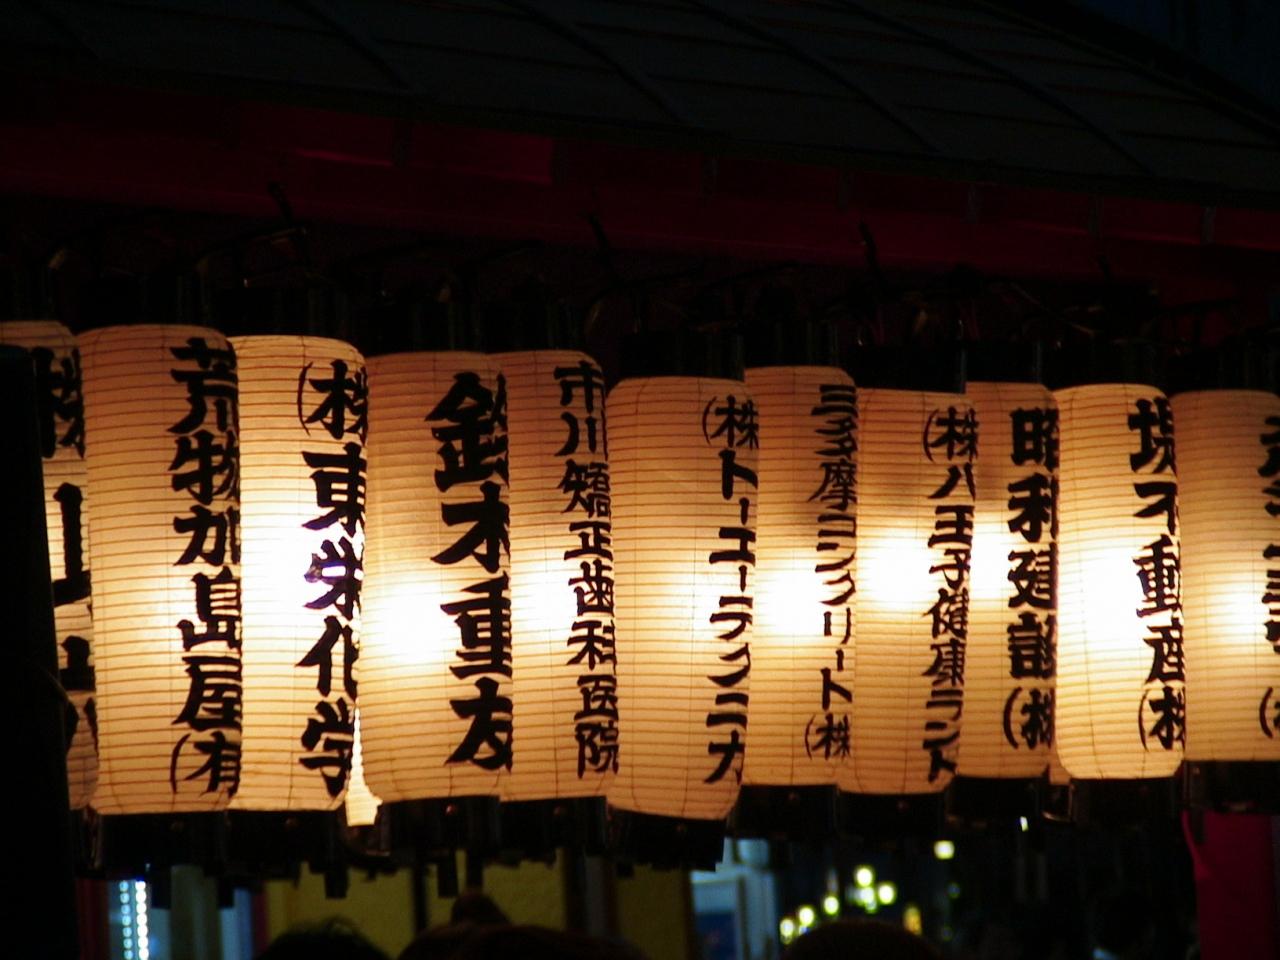 荒物加島屋(有)
(株)東栄化学
鈴木重友
市川矯正歯科医院
(株)トーエーラクニカ
三多摩コンクリート(株)
(株)八王子健康ランド
昭利建設(株)
堤不動産(株)